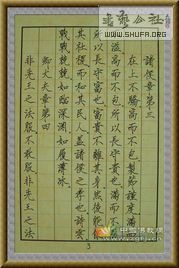 諸侯章第三
在上不驕高而不危製節謹度滿而不
溢高而不危所以長守貴也滿而不
所以長守富也富貴不離其身然後能
其社稷而和其民人蓋諸侯之孝也詩雲
戰戰兢兢如臨深淵如履薄冰
卿大夫章第四
非先王之法服不敢服非先王之法
3